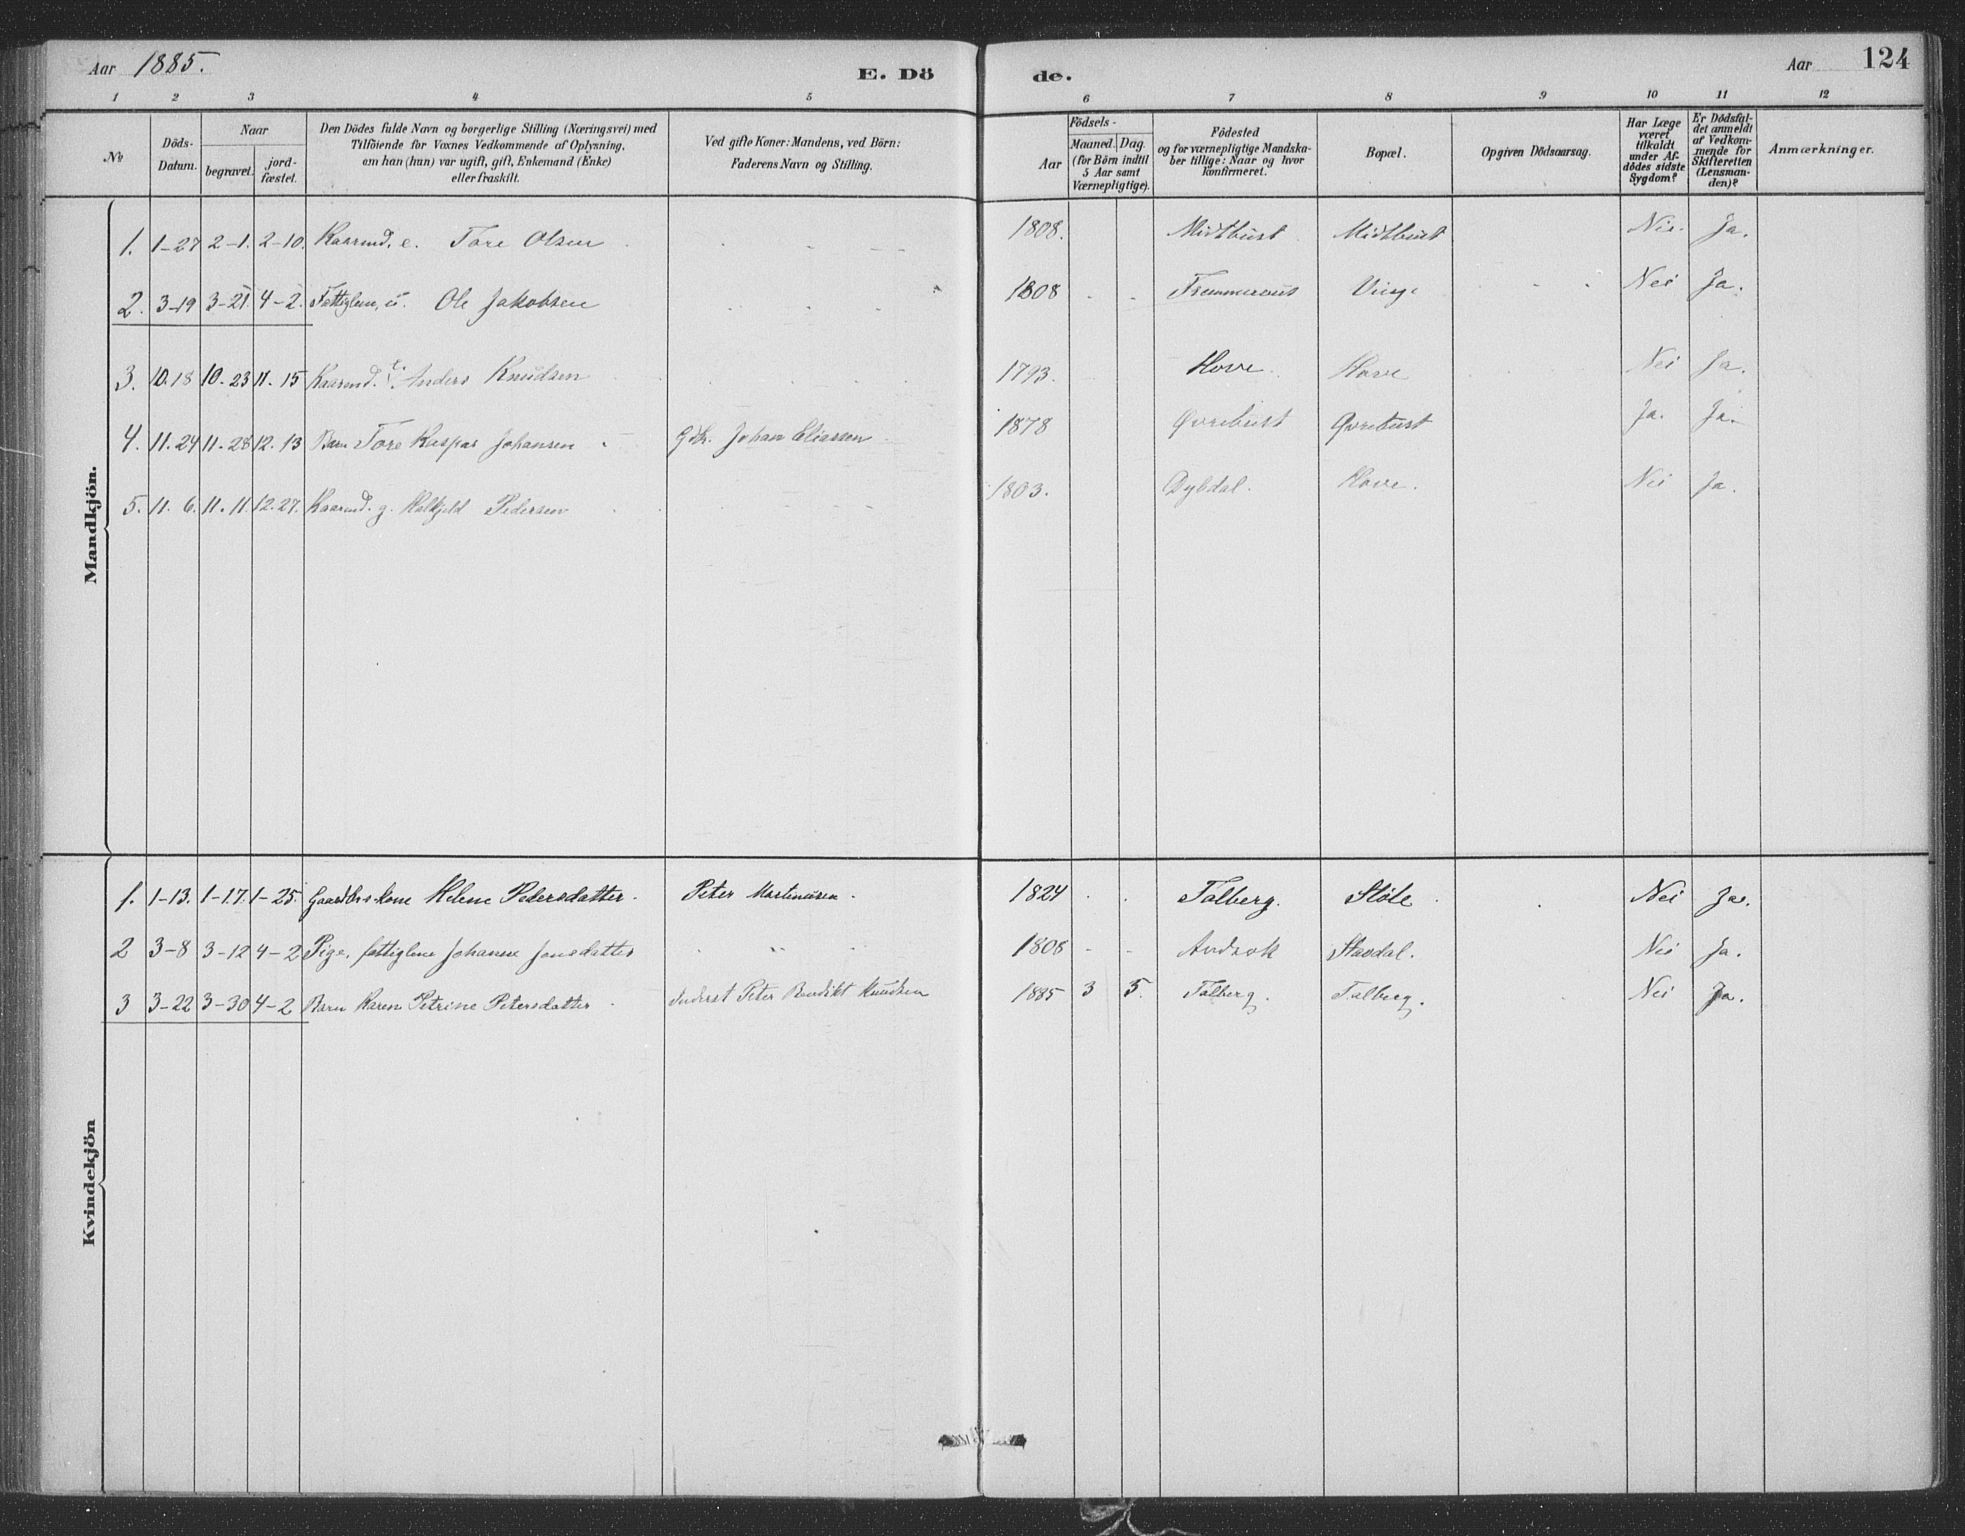 Aar 1885. E. Dö de. Aar 124
1 2 3 4 5 6 7 8 9 10 11 12
No Döds-Datum. Naar begravet. jord-fæstet. Den Dödes fulde Navn og borgerlige Stilling (Næringsvei) med Tilföiende for Voxnes Vedkommende af Oplysning, om han (hun) var ugift, gift, Enkemand (Enke) eller fraskilt. Ved gifte Koner: Mandens, ved Börn: Faderens Navn og Stilling. Födsels- Aar Maaned. Dag. (for Börn indtil 5 Aar samt Værnepligtige). Födested og for værnepligtige Mandskaber tillige: Naar og hvor konfirmeret. Bopæl. Opgiven Dödsaarsag. Har Læge været tilkaldt under Afdödes sidste Sygdom? Er Dödsfaldet anmeldt af Vedkommende for Skifteretten (Lensmanden)? Anmærkninger.
Mandkjön.
1. 1-27 2-1. 2-10. Kaarmd. e. Tore Olsen 1808. Midtbust Midtbust Nei. Ja.
2. 3-19 3-21. 4-2. Fattiglem, u. Ole Jakobsen 1808 Nei Ja.
3. 10.18 10.23 11.15 Kaarmd. e. Anders Knudsen 1793. Hove. Hove Nei Ja.
4. 11.24 11.28 12.13 Barn Tore Kaspar Johansen Gdbr. Johan Eliassen 1878 Øvrebust Øvrebust Ja. Ja.
5. 11.6. 11.11. 12.27. Kaarmd. g. Halkjeld Pedersen 1803. Dybdal. Hove. Nei Ja.
Kvindekjön
1. 1-13. 1-17. 1-25. Gaardbrs.kone Helene Pedersdatter. Peter Martinusen. 1824 Talberg. Støle Nei Ja.
2 3-8 3-12 4-2 Pige, fattiglem Johanne Jonsdatter 1808 Nei Ja.
3 3-22 3-30 4-2 Barn Karen Petrine Petersdatter Inderst Peter Benedikt Knudsen 1885 3 5. Talberg. Talberg. Nei Ja.